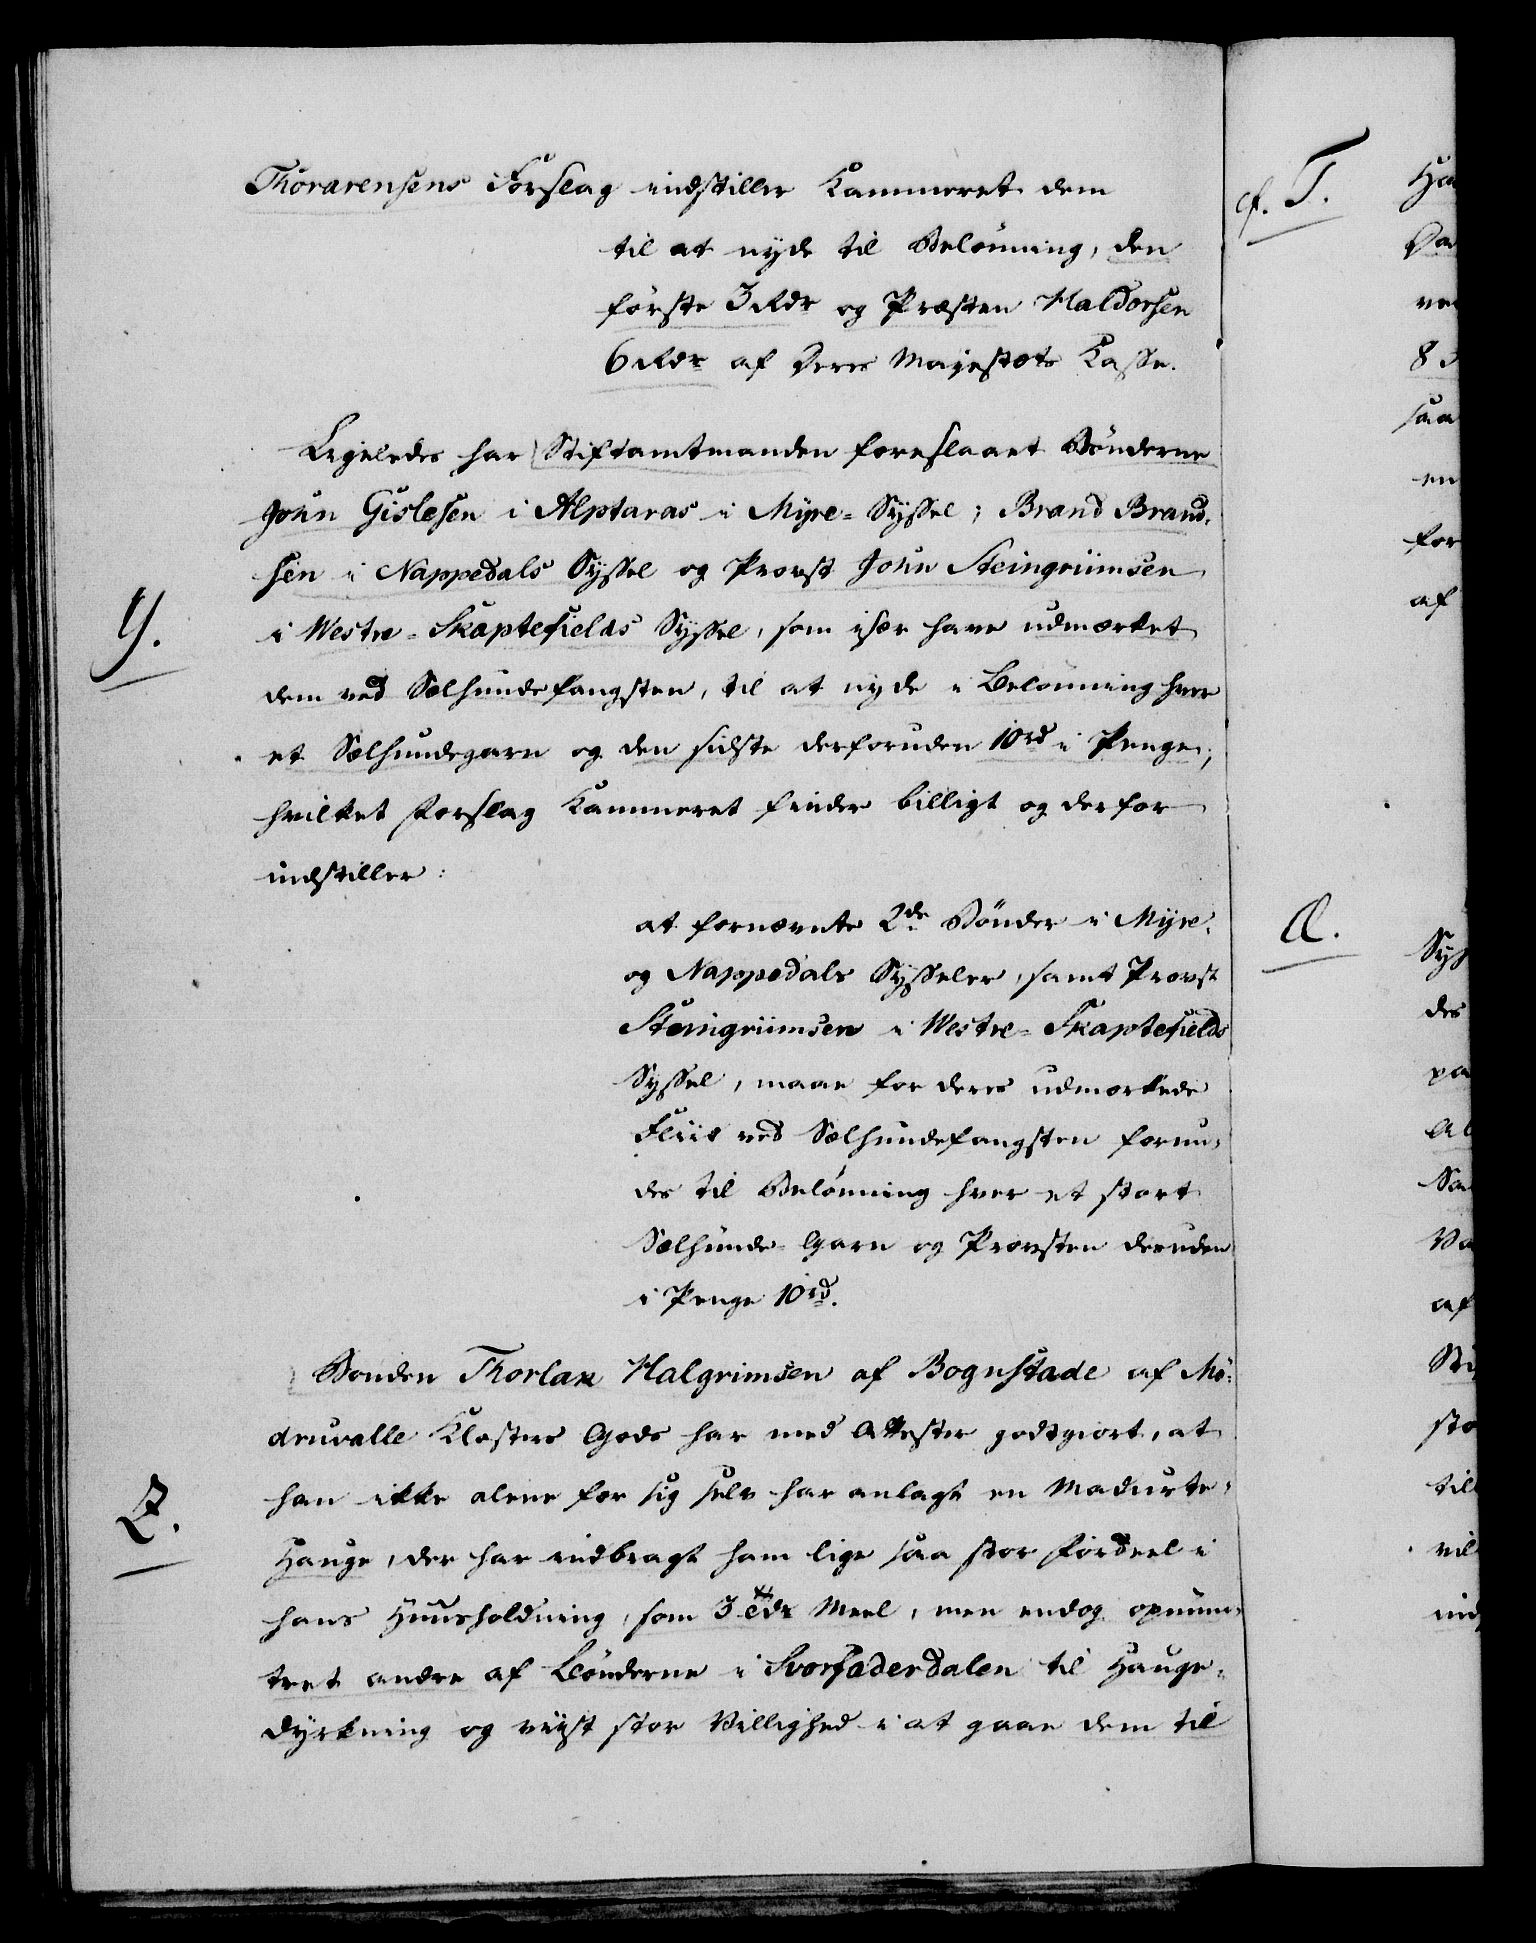 Thorarensens Forslag indstiller Kammeret dem
til at nyde til Belönning, den
første 3 Rdr og Præsten Haldorsen
6 Rdr af Deres Majestæts Kasse.
Ligeledes har Stiftamtmanden foreslaaet Bönderne
John Gislesen i Alptaras i Myre-Syssel; Brand Brand-
sen i Nappedals Syssel og Provst John Steingriimsen
Y.
i Westre-Skaptefields Syssel, som især have udmærket
dem ved Sælhundefangsten, til at nyde i Belönning hver
et Sælhundegarn og den sidste desforuden 10rd i Penge;
hvilket Forslag Kammeret finder billigt og derfor
indstiller:
at fornævnte 2de Bönder i Myre-
og Nappedals Sysseler, samt Provst
Steingriimsen i Westre-Skaptefields
Syssel, maae for deres udmærkede
Fliit ved Sælhundefangsten forun-
des til Belönning hver et stort
Sælhunde-Garn og Provsten desuden
i Penge 10rd.
Bonden Thorlak Halgrimsen af Bognstade af Mö-
druvalle Klosters Gods har med Attester godtgiort, at
Z.
han ikke alene for sig selv har anlagt en Madurte-
Hauge, der har indbragt ham lige saa stor Fordeel i
hans Huusholdning, som 3 Tdr Meel, men endog opmun-
tret andre af Bönderne i Svorfaderdalen til Hauge-
dyrkning og viist stor Villighed i at gaae dem til
cf. T.
8
saa
en
for
af
Æ.
des
af
sto
til